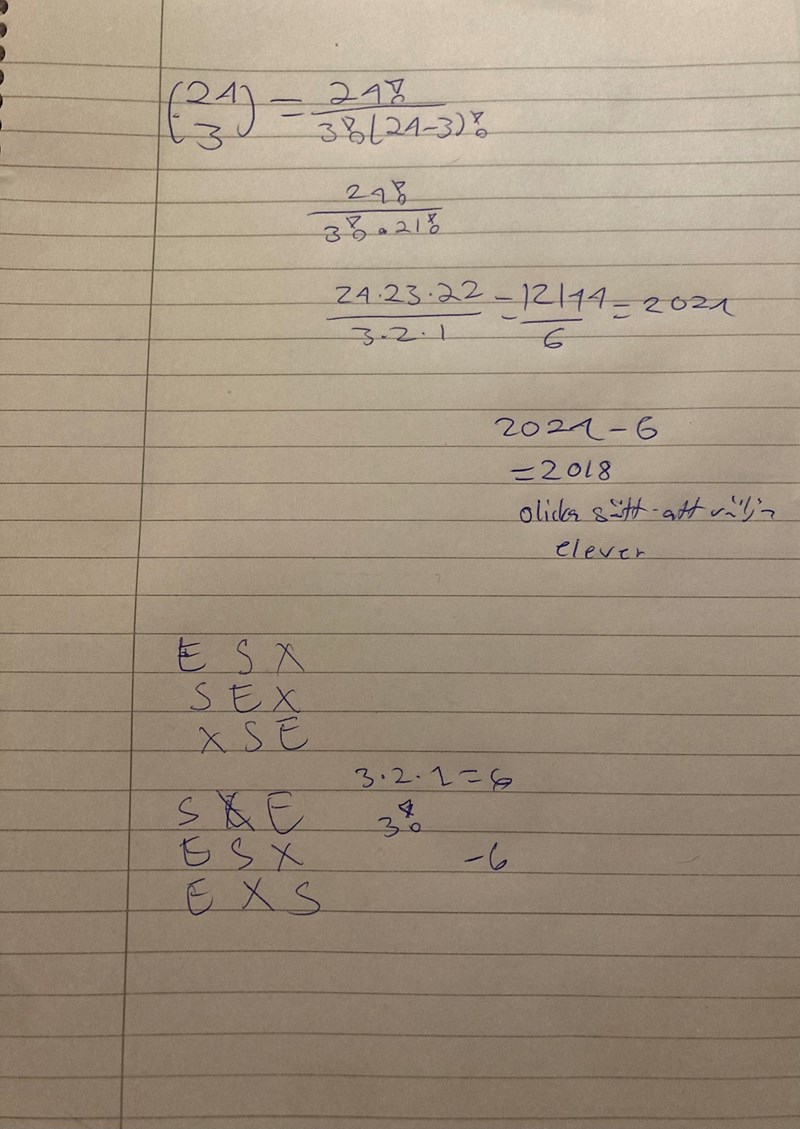 (24 3) = 24! / 3!(24-3)!
24! / 3! · 21!
24·23·22 / 3·2·1 = 12144 / 6 = 2024
2024 - 6
= 2018
olicka sätt att välja
elever
E S X
S E X
X S E
3·2·1 = 6
S X E 3!
E S X -6
E X S